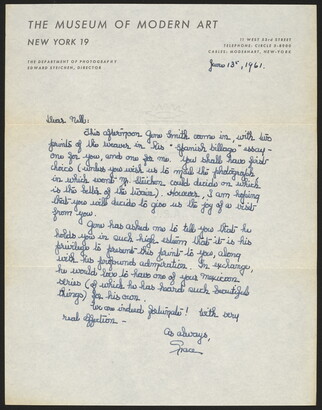 THE MUSEUM OF MODERN ART
NEW YORK 19
11 WEST 53rd STREET
TELEPHONE: CIRCLE 5-8900
CABLES: MODERNART, NEW-YORK
THE DEPARTMENT OF PHOTOGRAPHY
EDWARD STEICHEN, DIRECTOR
June 13th, 1961.
Dear Nell:
This afternoon Gene Smith came in, with two
prints of the weaver in his "Spanish Village" essay -
one for you, and one for me. You shall have first
choice (unless you wish us to mail the photograph
in which event Mr. Steichen could decide on which
is the better of the two). However, I am hoping
that you will decide to give us the joy of a visit
from you.
Gene has asked me to tell you that he
holds you in such high esteem that it is his
privilege to present this print to you, along
with his profound admiration. In exchange,
he would love to have one of your Mexican
series (of which he has heard such beautiful
things) for his own.
We are indeed fortunate! With very
real affection -
As always,
Grace